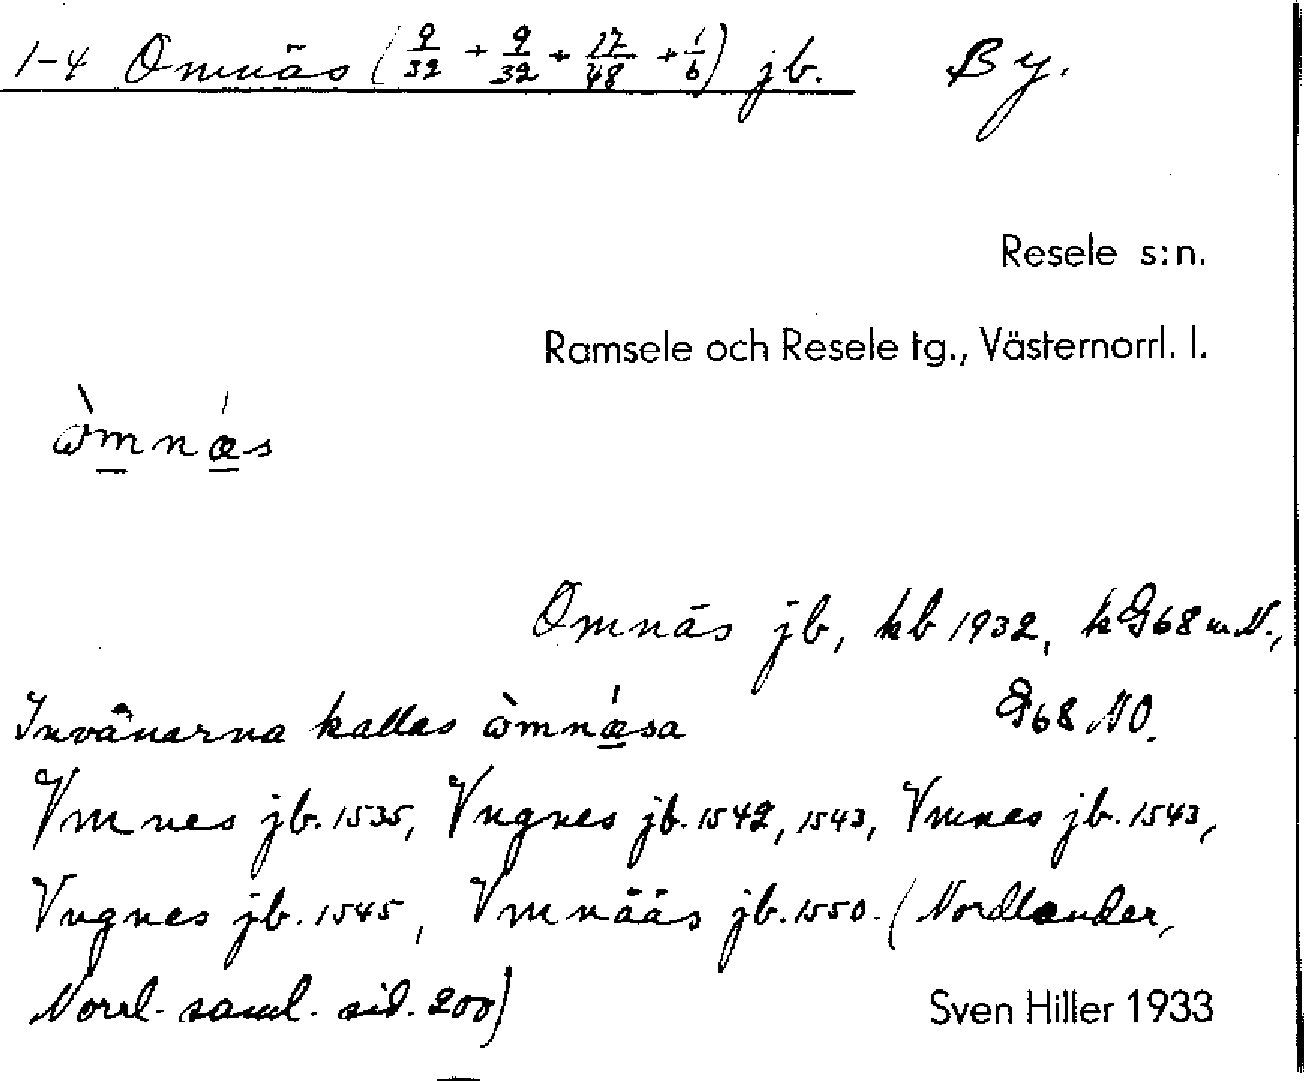 1-4 Omnäs (9/32 + 9/32 + 17/48 + 1/6) jb. By.
Resele s:n.
Ramsele och Resele tg., Västernorrl. l.
ὼmnǽs
Omnäs jb, kb 1932, k G68 m.N.,
G68 NO.
Invånarna kallas ὼmnǽsa
Vmnes jb. 1535, Vngnes jb. 1542, 1543, Vmnes jb. 1543,
Vngnes jb. 1545, Vmnääs jb. 1550. (Nordlander,
Norrl. saml. sid. 200)
Sven Hiller 1933